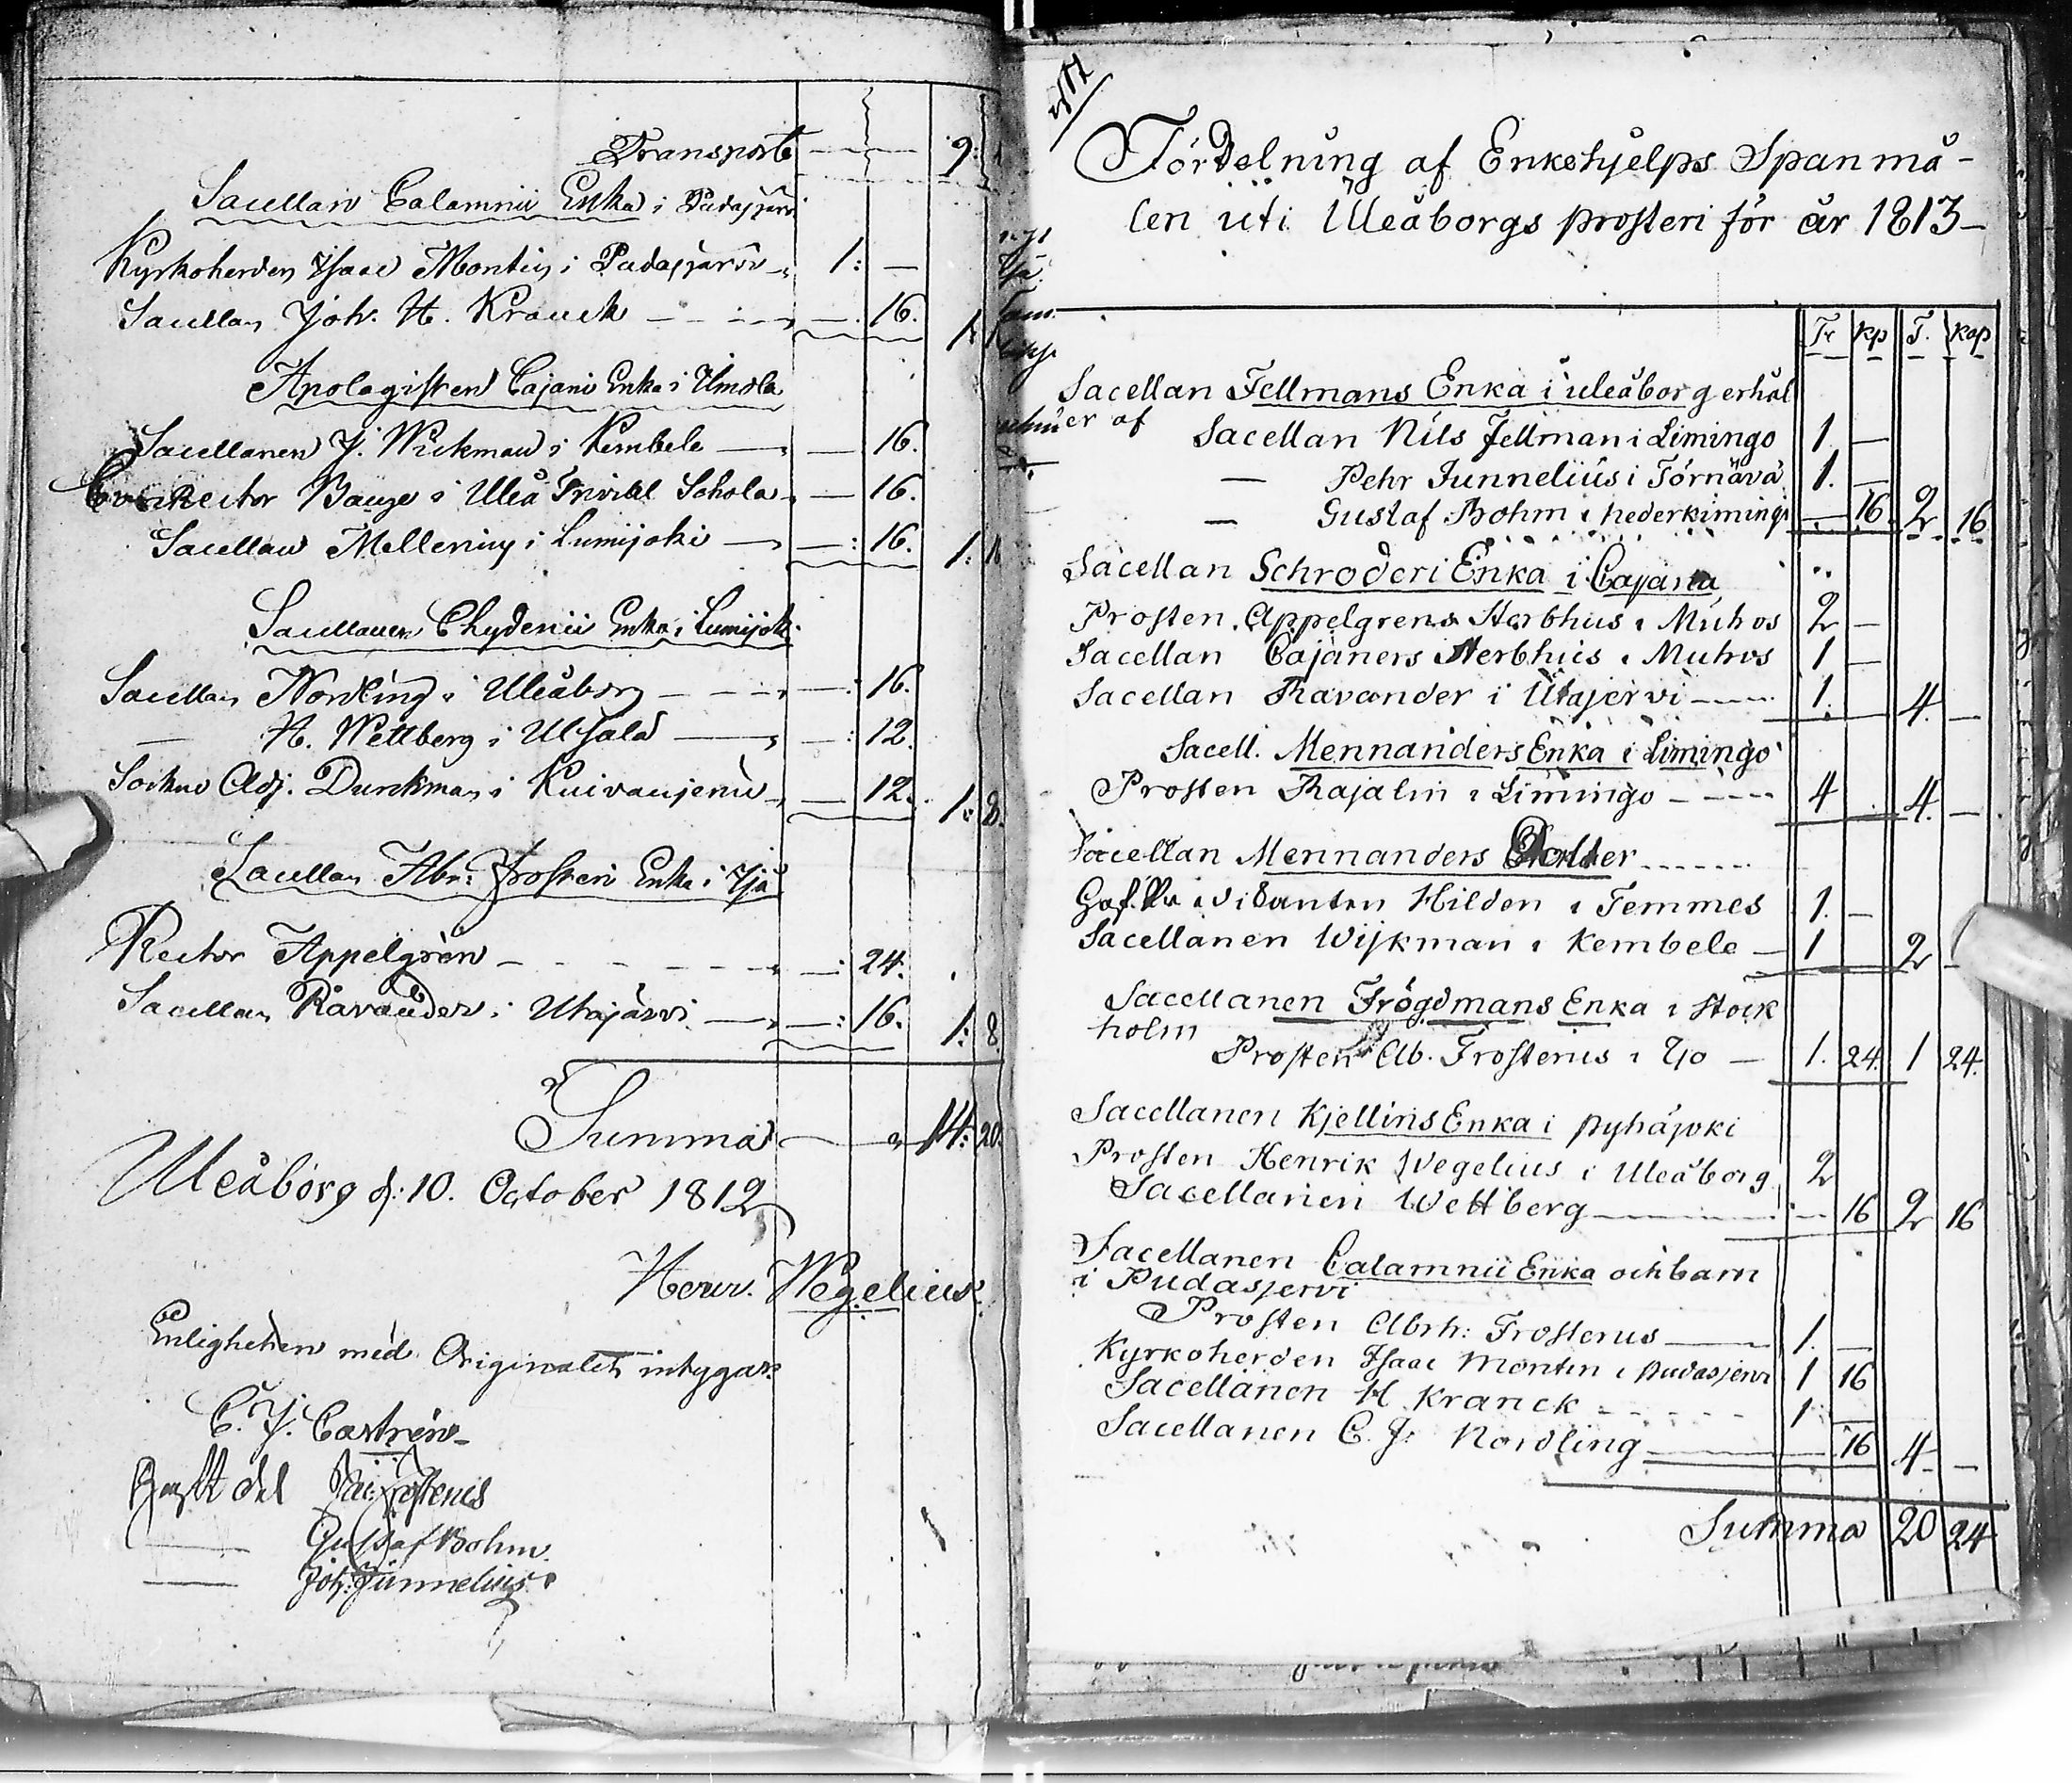 Transport — 9:
Sacellan Calamnii Enka i Pudasjärvi
Kyrkoherden Isaac Montin i Pudasjärvi 1: —
Sacellan Joh. H. Kranck — 16. 1:
Apologisten Cajani Enka i Umola
Sacellanen J. Wickman i Kembele — 16.
Con Rector Bange i Uleå Trivial Schola — 16.
Sacellan Mellenius i Lumijoki — : 16. 1:
Sacellanen Chydenii Enka i Lumijoki
Sacellan Nordling i Uleåborg — : 16.
— H. Wettberg i Ulsala — : 12.
Sockne Adj. Durchman i Kuivaniemi — 12. 1: 8.
Sacellan Abr: Frosteri Enka i Ijå
Rector Appelgrén — : 24.
Sacellan Ravander i Utajärvi — : 16. 1: 8.
Summa — 14: 20.
Uleåborg d: 10. October 1812
Henr. Wegelius.
Enligheten med Originalet intygar:
C. J. Castrén
Gustaf Bohm.
Joh: Junnelius
Fördelning af Enkehjelps Spanmå-
len uti Uleåborgs prosteri för år 1813 —
Tr kp T. kap
Sacellan Fellmans Enka i Uleåborg erhål
er af
Sacellan Nils Fellman i Limingo 1. —
— Pehr Junnelius i Törnävä 1. —
— Gustaf Bohm i nederkimingi — 16. 2 16
Sacellan Schroderi Enka i Cajana
Prosten Appelgrens Sterbhus i Muhos 2 —
Sacellan Cajaners Sterbhus i Muhos 1 —
Sacellan Ravander i Utajervi — 1. 4. —
Sacell. Mennanders Enka i Limingo
Prosten Rajalin i Limingo — 4 4. —
Sacellan Mennanders Dotter
Hilden i Temmes 1. —
Sacellanen Wijkman i Kembele — 1 2 —
Sacellanen Frögdmans Enka i Stock
holm
Prosten Ab. Frosterus i Ijo — 1. 24. 1 24.
Sacellanen Kjellins Enka i pyhäjoki
Prosten Henrik Wegelius i Uleåborg 2
Sacellanen Wettberg — 16 2 16
Sacellanen Calamnii Enka och barn
i Pudasjervi
Prosten Abrh: Frosterus — 1. —
Kyrkoherden Isaac Montin i pudasjervi 1 16
Sacellanen H Kranck — 1 —
Sacellanen C. J. Nordling — 16 4 —
Summa 20 24